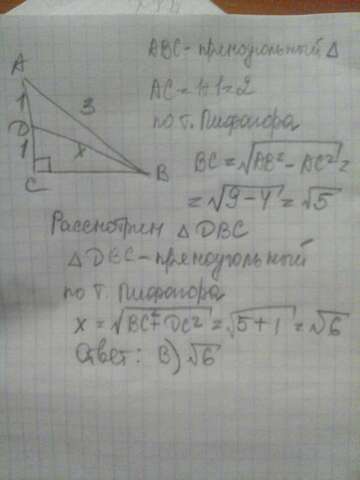 A
1
3
D
1
x
C
B
ABC - прямоугольный Δ
AC = 1+1=2
по т. Пифагора
BC = √AB² - AC² =
= √9-4 = √5
Рассмотрим Δ DBC
Δ DBC - прямоугольный
по т. Пифагора
x = √BC²+DC² = √5+1 = √6
Ответ: В) √6